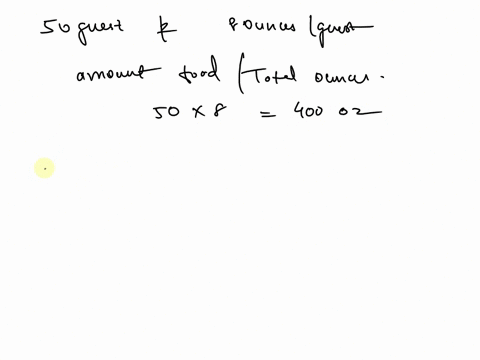 50 guest & 8 ounces / guest
amount food / Total ounces .
50 x 8 = 400 oz